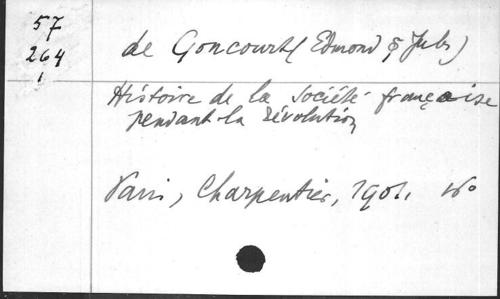 57
264
1
de Goncourt (Edmond & Jules)
Histoire de la Société française
pendant la Révolution
Paris, Charpentier, 1901, in